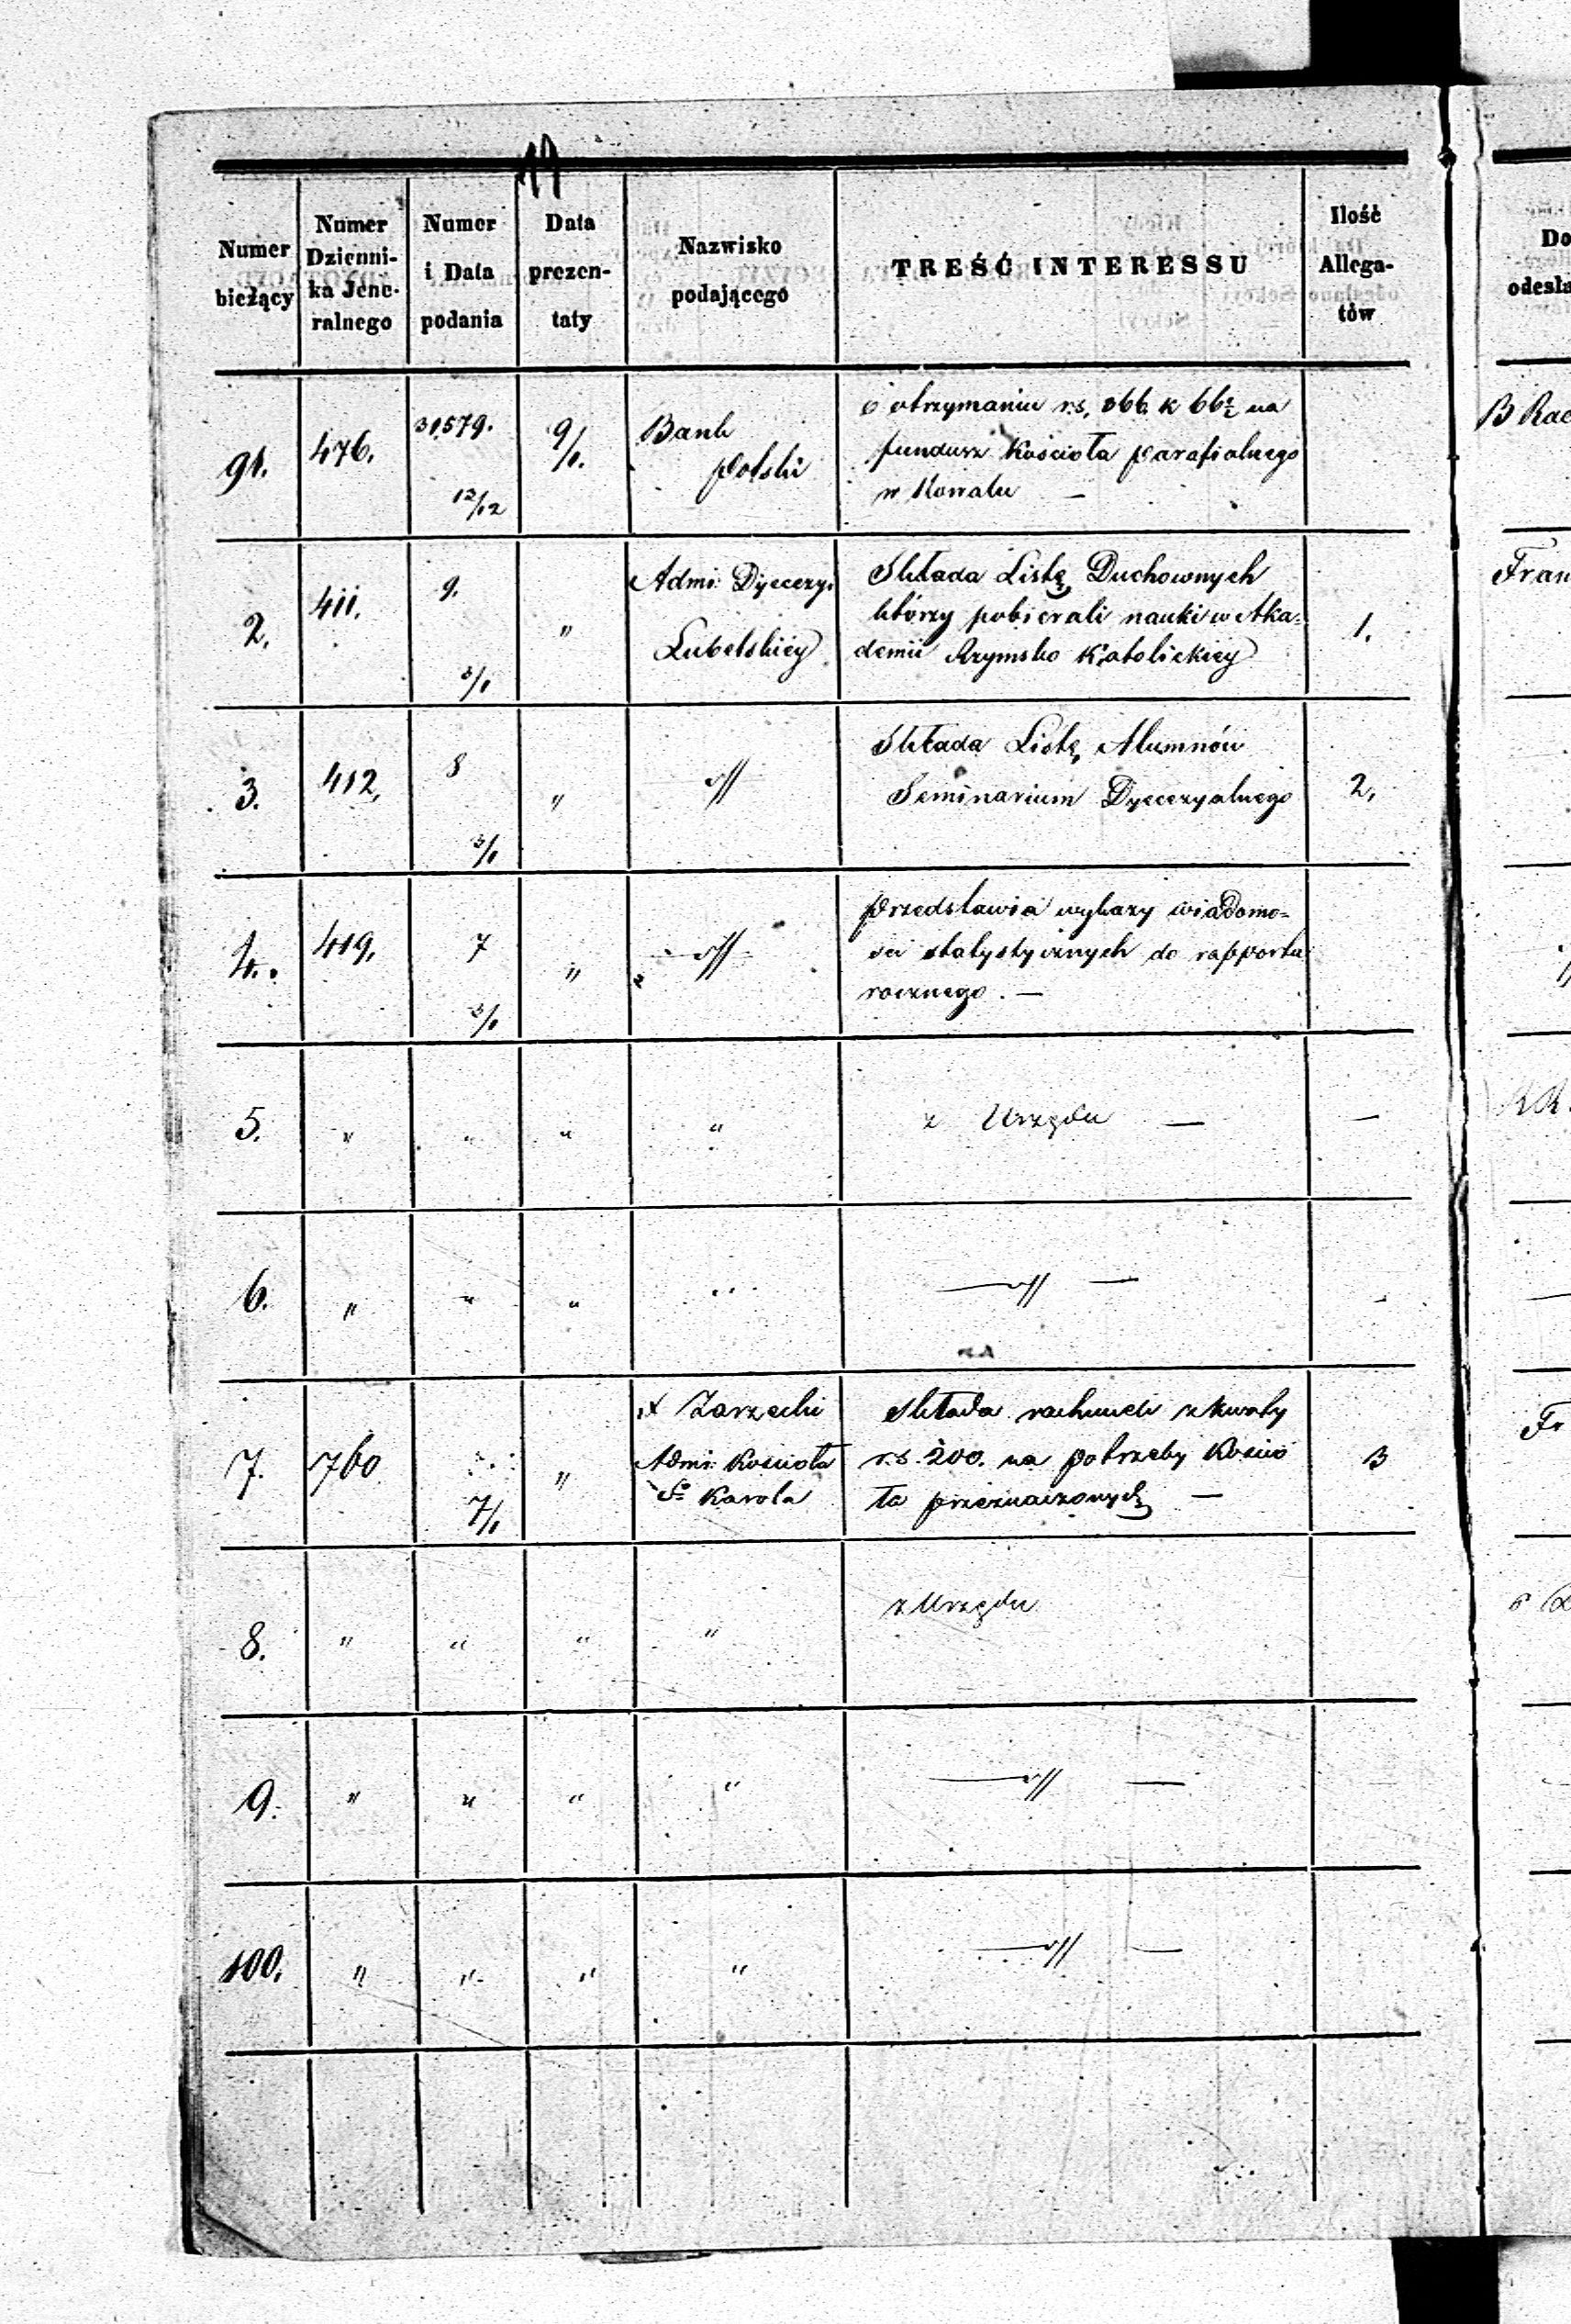 19
Numer bieżący | Numer Dzienni-ka Jene-ralnego | Numer i Data podania | Data prezen-taty | Nazwisko podającego | TREŚĆ INTERESSU | Ilość Allega-tów
91. | 476. | 30,579. 12/12 | 9/1. | Bank Polski | o otrzymaniu rs, 366 k 66½ na
fundusz Kościoła parafialnego
w Kowalu —
2. | 411. | 9. 3/1 | " | Admi: Dyecezyi Lubelskiéy | Składa Listę Duchownych
którzy pobierali nauki w Aka-
demii Rzymsko Katolickiéy | 1.
3. | 412, | 8 3/1 | " | " | Składa Listę Alumnów
Seminarium Dyecezyalnego | 2,
4. | 419, | 7 3/1 | " | " | przedstawia wykazy wiadomo-
ści statystycznych do rapportu
rocznego. —
5. | " | " | " | " | z Urzędu — | —
6. | " | " | " | " | — " —
7. | 760 | 7/1 | " | X Zarzecki
Admi: Kościoła
Sgo Karola | składa rachunek z kwoty
rs. 200. na potrzeby Kościo
ła przeznaczonych — | 3
8. | " | " | " | " | z Urzędu
9. | " | " | " | " | — " —
100. | " | " | " | " | — " —
Do
odesła
B Rad
Fran
Fr